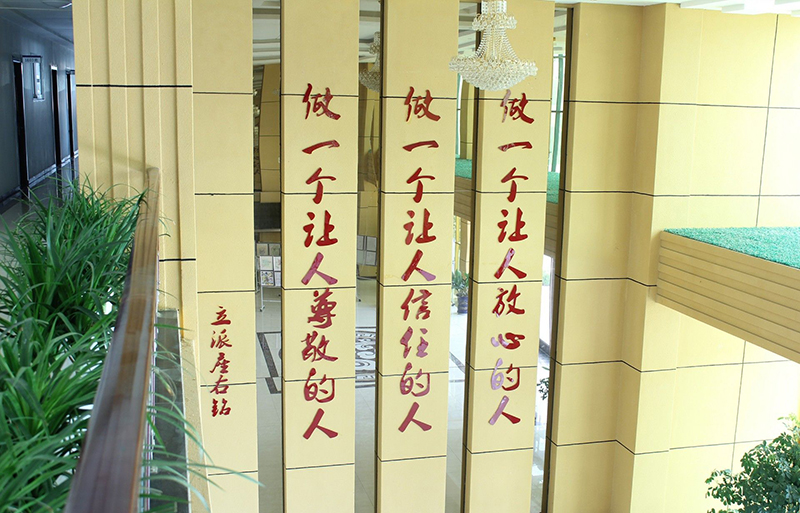 做一个让人放心的人
做一个让人信任的人
做一个让人尊敬的人
立派座右铭